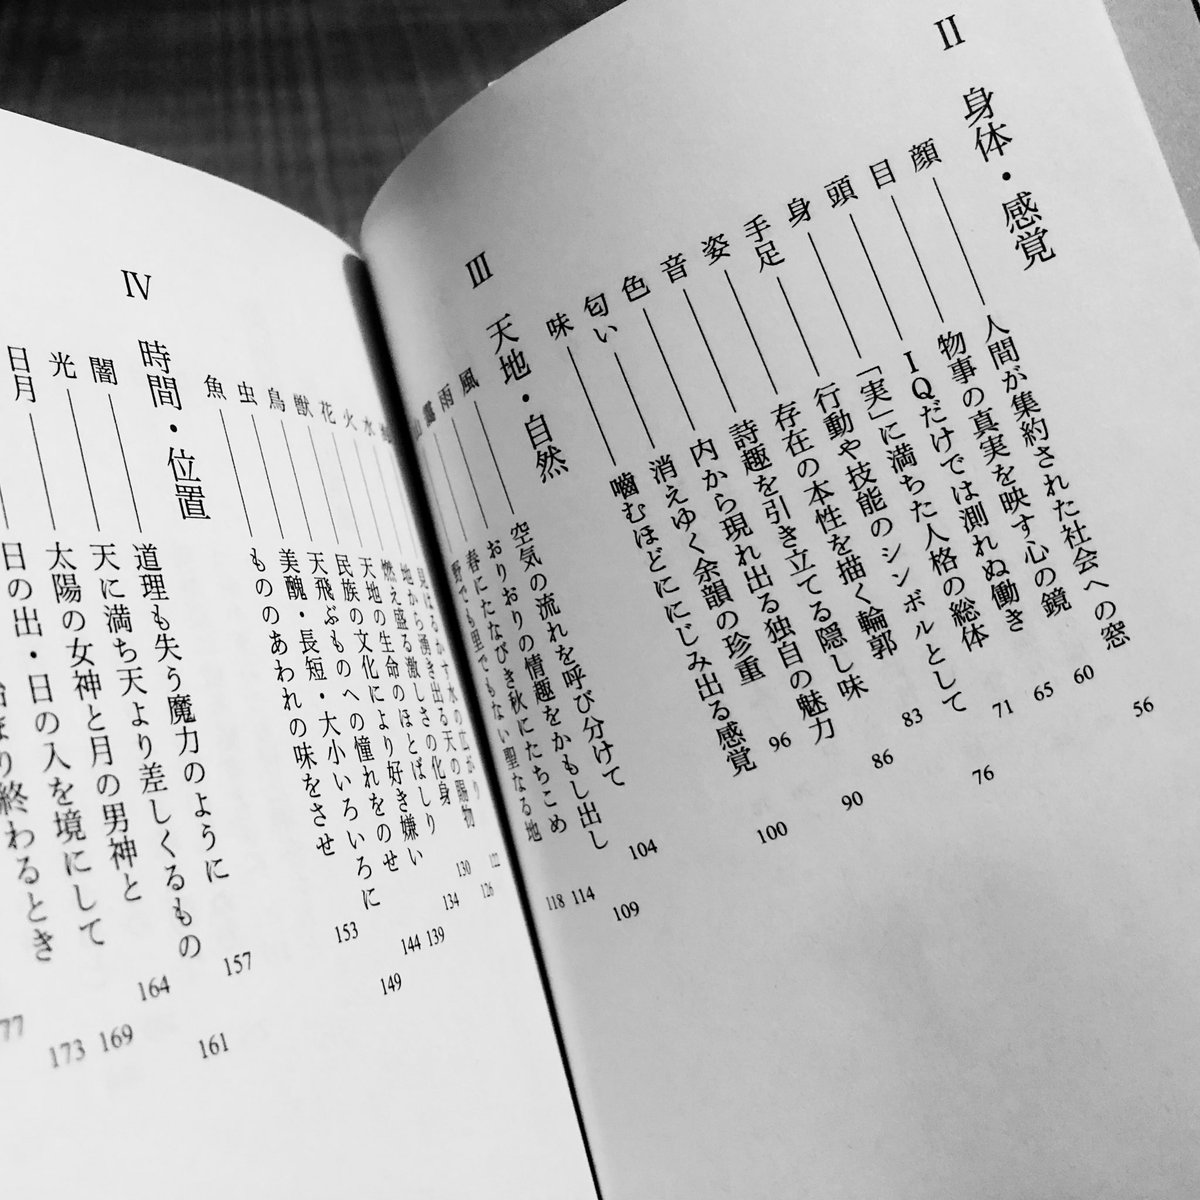 II 身体・感覚
顔――人間が集約された社会への窓 56
目――物事の真実を映す心の鏡 60
頭――IQだけでは測れぬ働き 65
身――「実」に満ちた人格の総体 71
手足――行動や技能のシンボルとして 76
姿――存在の本性を描く輪郭 83
音――詩趣を引き立てる隠し味 86
色――内から現れ出る独自の魅力 90
匂い――消えゆく余韻の珍重 96
味――噛むほどににじみ出る感覚 100
III 天地・自然
風――空気の流れを呼び分けて 104
雨――おりおりの情趣をかもし出し 109
――春にたなびき秋にたちこめ 114
山――野でも里でもない聖なる地 118
――見はるかす水の広がり 122
水――地から湧き出る天の賜物 126
火――燃え盛る激しさの化身 130
花――天地の生命のほとばしり 134
獣――民族の文化により好き嫌い 139
鳥――天飛ぶものへの憧れをのせ 144
虫――美醜・長短・大小いろいろに 149
魚――もののあわれの味をさせ 153
IV 時間・位置
闇――道理も失う魔力のように 157
光――天に満ち天より差しくるもの 161
日月――太陽の女神と月の男神と 164
――日の出・日の入を境にして 169
始まり終わるとき 173
77